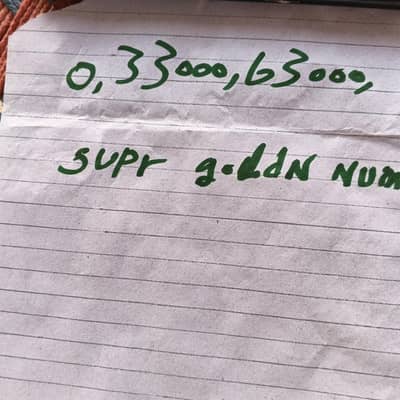 0,33000,63000,
supr goldN Num